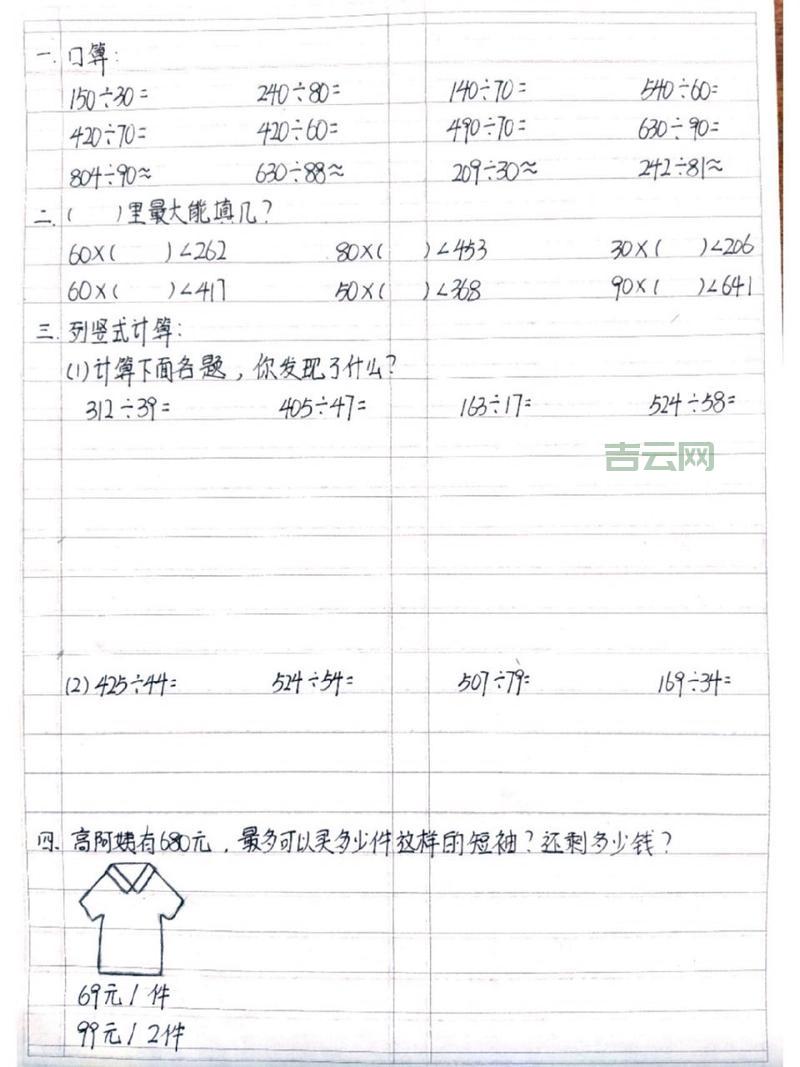 一. 口算:
150÷30= 240÷80= 140÷70= 540÷60=
420÷70= 420÷60= 490÷70= 630÷90=
804÷90≈ 630÷88≈ 209÷30≈ 242÷81≈
二. ( )里最大能填几?
60×( )<262 80×( )<453 30×( )<206
60×( )<417 50×( )<368 90×( )<641
三. 列竖式计算:
(1)计算下面各题,你发现了什么?
312÷39= 405÷47= 163÷17= 524÷58=
吉云网
(2)425÷44= 524÷54= 507÷79= 169÷34=
四. 高阿姨有680元,最多可以买多少件这样的短袖?还剩多少钱?
69元/件
99元/2件